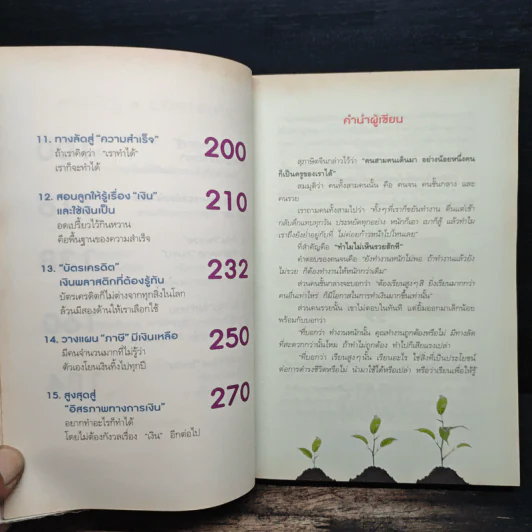 11. ทางลัดสู่ "ความสำเร็จ" 200
ถ้าเราคิดว่า "เราทำได้"
เราก็จะทำได้
12. สอนลูกให้รู้เรื่อง "เงิน" 210
และใช้เงินเป็น
อดเปรี้ยวไว้กินหวาน
คือพื้นฐานของความสำเร็จ
13. "บัตรเครดิต" 232
เงินพลาสติกที่ต้องรู้ทัน
บัตรเครดิตก็ไม่ต่างจากทุกสิ่งในโลก
ล้วนมีสองด้านให้เราเลือกใช้
14. วางแผน "ภาษี" มีเงินเหลือ 250
มีคนจำนวนมากที่ไม่รู้ว่า
ตัวเองโยนเงินทิ้งไปทุกปี
15. สูงสุดสู่ 270
"อิสรภาพทางการเงิน"
อยากทำอะไรก็ทำได้
โดยไม่ต้องกังวลเรื่อง "เงิน" อีกต่อไป
คำนำผู้เขียน
สุภาษิตจีนกล่าวไว้ว่า "คนสามคนเดินมา อย่างน้อยหนึ่งคน
ก็เป็นครูของเราได้"
สมมุติว่า คนทั้งสามคนนั้น คือ คนจน คนชั้นกลาง และ
คนรวย
เราถามคนทั้งสามไปว่า "ทั้งๆ ที่เราก็ขยันทำงาน ตื่นแต่เช้า
กลับดึกแทบทุกวัน ประหยัดทุกอย่าง หนักก็เอา เบาก็สู้ แล้วทำไม
เราถึงยังย่ำอยู่กับที่ ไม่ค่อยก้าวหน้าไปไหนเลย"
ที่สำคัญคือ "ทำไมไม่เห็นรวยสักที"
คำตอบของคนจนคือ "ยังทำงานหนักไม่พอ ถ้าทำงานแล้วยัง
ไม่รวย ก็ต้องทำงานให้หนักกว่าเดิม"
ส่วนคนชั้นกลางจะบอกว่า "ต้องเรียนสูงๆ สิ ยิ่งเรียนมากกว่า
คนอื่นเท่าไหร่ ก็มีโอกาสในการทำเงินมากขึ้นเท่านั้น"
ส่วนคนรวยนั้น เขาไม่ตอบในทันที แต่ยิ้มออกมาเล็กน้อย
พร้อมกับบอกว่า
"ที่บอกว่า ทำงานหนักนั้น คุณทำงานถูกต้องหรือไม่ มีทางลัด
ที่สะดวกกว่านั้นไหม ถ้าทำไม่ถูกต้อง ทำไปก็เสียแรงเปล่า
"ที่บอกว่า เรียนสูงๆ นั้น เรียนอะไร ใช่สิ่งที่เป็นประโยชน์
ต่อการดำรงชีวิตหรือไม่ นำมาใช้ได้หรือเปล่า หรือว่าเรียนเพื่อให้รู้